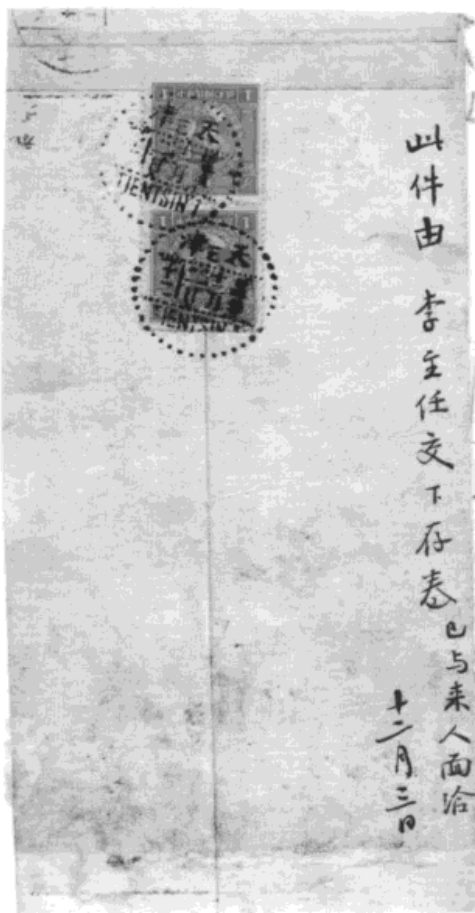 此件由 李主任交下存卷已与来人面洽
十二月三日
天津
TIENTSIN 1
天津
TIENTSIN
1 1
1 1